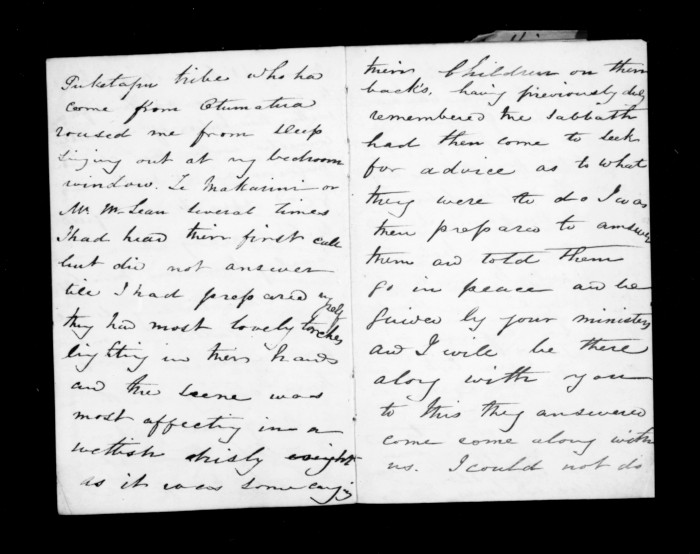 Puketapu tribe who had
come from Otumatua
roused me from sleep
singing out at my bedroom
window. Te Makarini or
Mr McLean several times
I had head their first call
but did not answer
till I had prepared myself
they had most lovely torches
lighting in their hands
and the scene was
most affecting in a
wettish drisly night
as it was some carrying
their Children on their
backs. having previously duly
remembered the Sabbath
had then come to seek
for advice as to what
they were to do I was
then prepared to answer
them and told them
go in peace and be
guided by your ministers
and I will be there
along with you
to this they answered
come come along with
us. I could not do